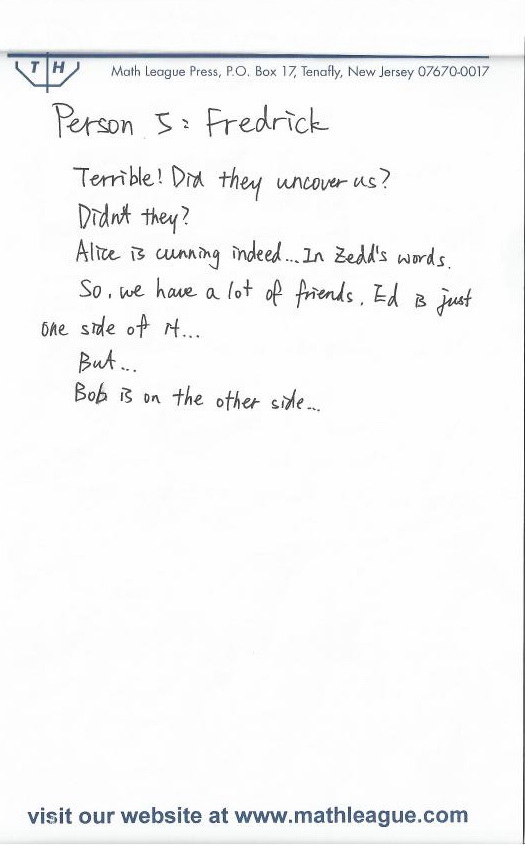 TH
Math League Press, P.O. Box 17, Tenafly, New Jersey 07670-0017
Person 5: Fredrick
Terrible! Did they uncover us?
Didn't they?
Alice is cunning indeed... In Zedd's words.
So, we have a lot of friends. Ed is just
one side of it...
But...
Bob is on the other side...
visit our website at www.mathleague.com